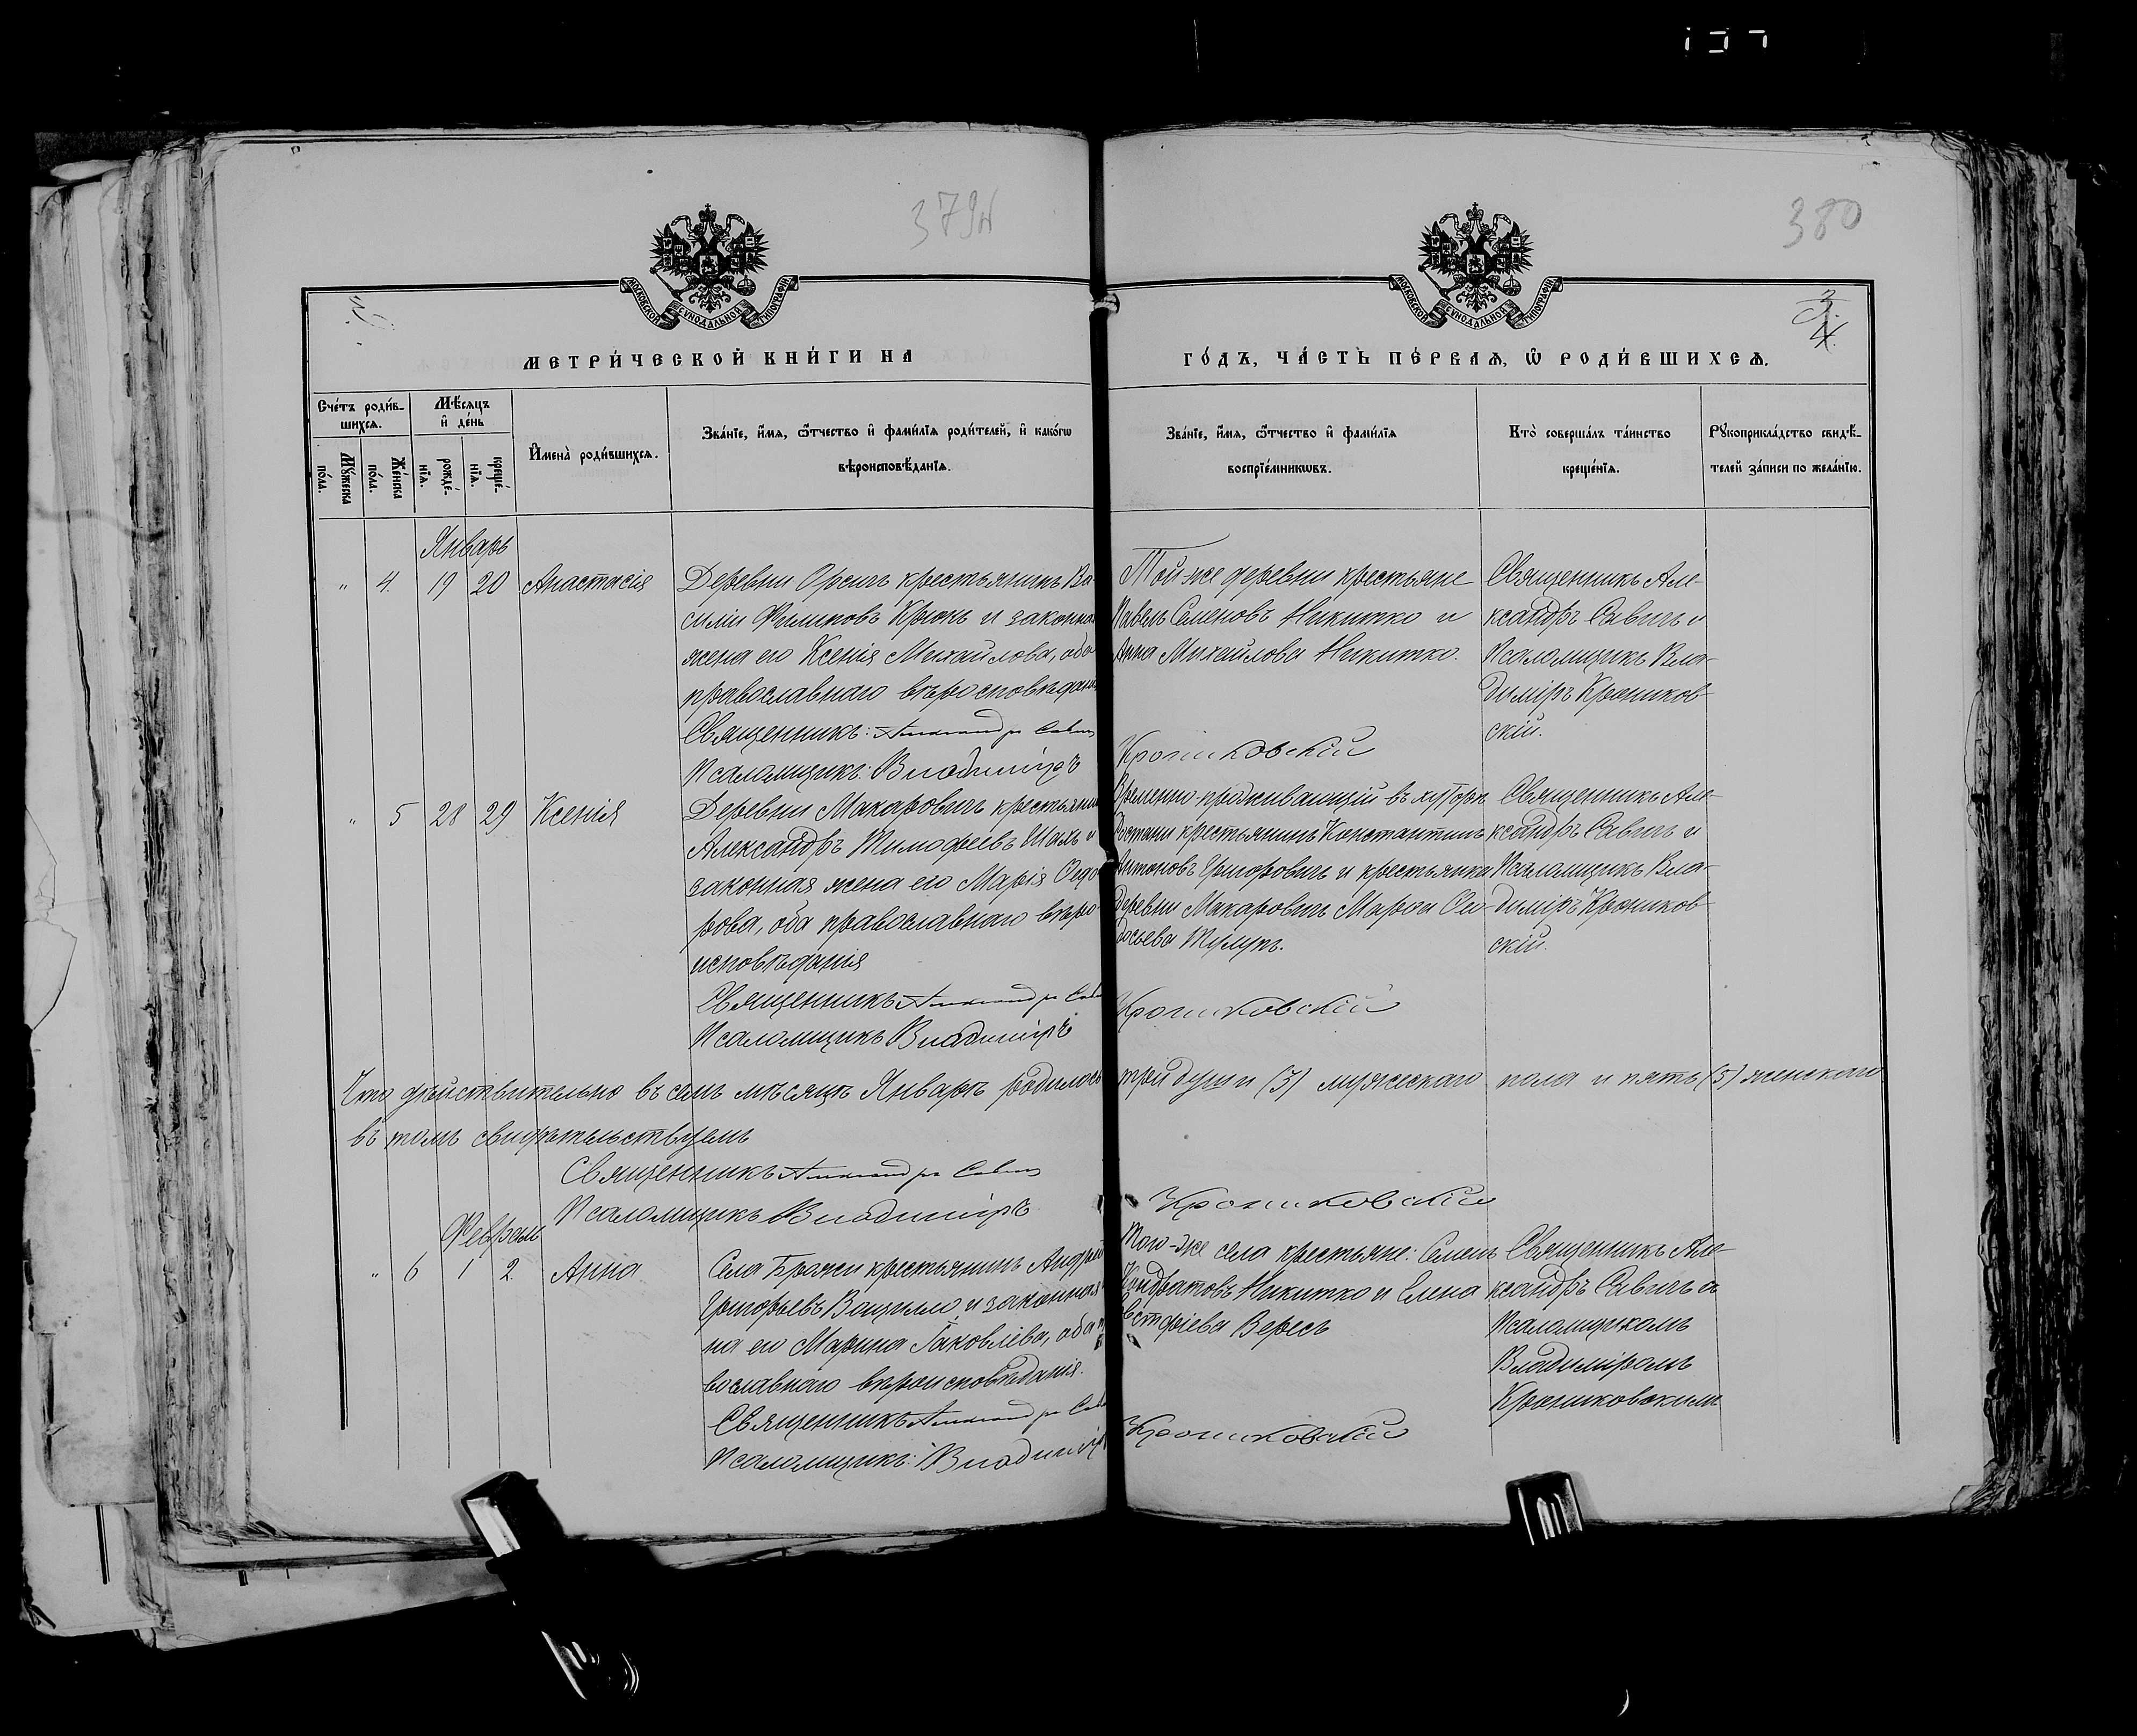 379
380
МОСКОВСКОЙ СѴНОДАЛЬНОЙ ТИПОГРАФІИ
МОСКОВСКОЙ СѴНОДАЛЬНОЙ ТИПОГРАФІИ
3.
МЕТРИ́ЧЕСКОЙ КНИ́ГИ НА
ГО́ДЪ, ЧА́СТЬ ПЕ́РВАѦ, Ѡ҆ РОДИ́ВШИХСѦ.
Сче́тъ роди́в-
шихсѧ.
Мꙋ́жеска
по́ла.
Же́нска
по́ла.
Мѣ́сѧцъ
и҆ де́нь
рожде́-
нїѧ.
креще́-
нїѧ.
И҆мена̀ роди́вшихсѧ.
Зва́нїе, и҆́мѧ, ѻ҆́тчество и҆ фами́лїѧ роди́телей, и҆ како́гѡ
вѣроисповѣ́данїѧ.
Зва́нїе, и҆́мѧ, ѻ҆́тчество и҆ фами́лїѧ
воспрїе́мникѡвъ.
Кто̀ соверша́лъ та́инство
креще́нїѧ.
Рꙋкоприкла́дство свидѣ́-
телей за́писи по жела́нїю.
Январь
" 4. 19 20 Анастасія
Деревни Орсичъ крестьянинъ Ва-
силій Филиповъ Крюкъ и законная
жена его Ксенія Михайлова, оба
православнаго вѣроисповѣданія
Священникъ: Александръ Савич
Псаломщикъ: Владиміръ
Той-же деревни крестьяне
Павелъ Семеновъ Никитко и
Анна Михайлова Никитко.
Крониковскій
Священникъ Але-
ксандръ Савичъ и
Псаломщикъ Вла-
диміръ Кроников-
скій.
" 5 28 29 Ксенія
Деревни Макаровичъ крестьянин
Александръ Тимофеевъ Шахъ и
законная жена его Марія Ѳедо
рова, оба православнаго вѣро-
исповѣданія
Священникъ Александръ Сав
Псаломщикъ Владиміръ
Временно-проживающій въ хуторѣ
крестьянинъ Константинъ
Антоновъ Григоровичъ и крестьянка
деревни Макаровичъ Марѳа Ѳео
досьева Тулупъ.
Крониковскій
Священникъ Але-
ксандръ Савичъ и
Псаломщикъ Вла-
диміръ Кроников-
скій.
Что дѣйствительно въ семъ мѣсяцѣ Январѣ родилось три души (3) мужескаго пола и пять (5) женскаго
въ томъ свидѣтельствуемъ
Священникъ Александръ Савич
Псаломщикъ Владиміръ Крониковскій
Февраль
" 6 1 2. Анна
Села Бражи крестьянинъ Андрей
Григорьевъ Ващило и законная
на его Марина Іаковлева, оба п
вославнаго вѣроисповѣданія.
Священникъ Александръ Сав
Псаломщикъ: Владиміръ
Того-же села крестьяне: Семенъ
Кондратовъ Никитко и Елена
Евстафіева Вересъ
Крониковскій
Священникъ Але-
ксандръ Савичъ съ
Псаломщикомъ
Владиміромъ
Крониковскимъ